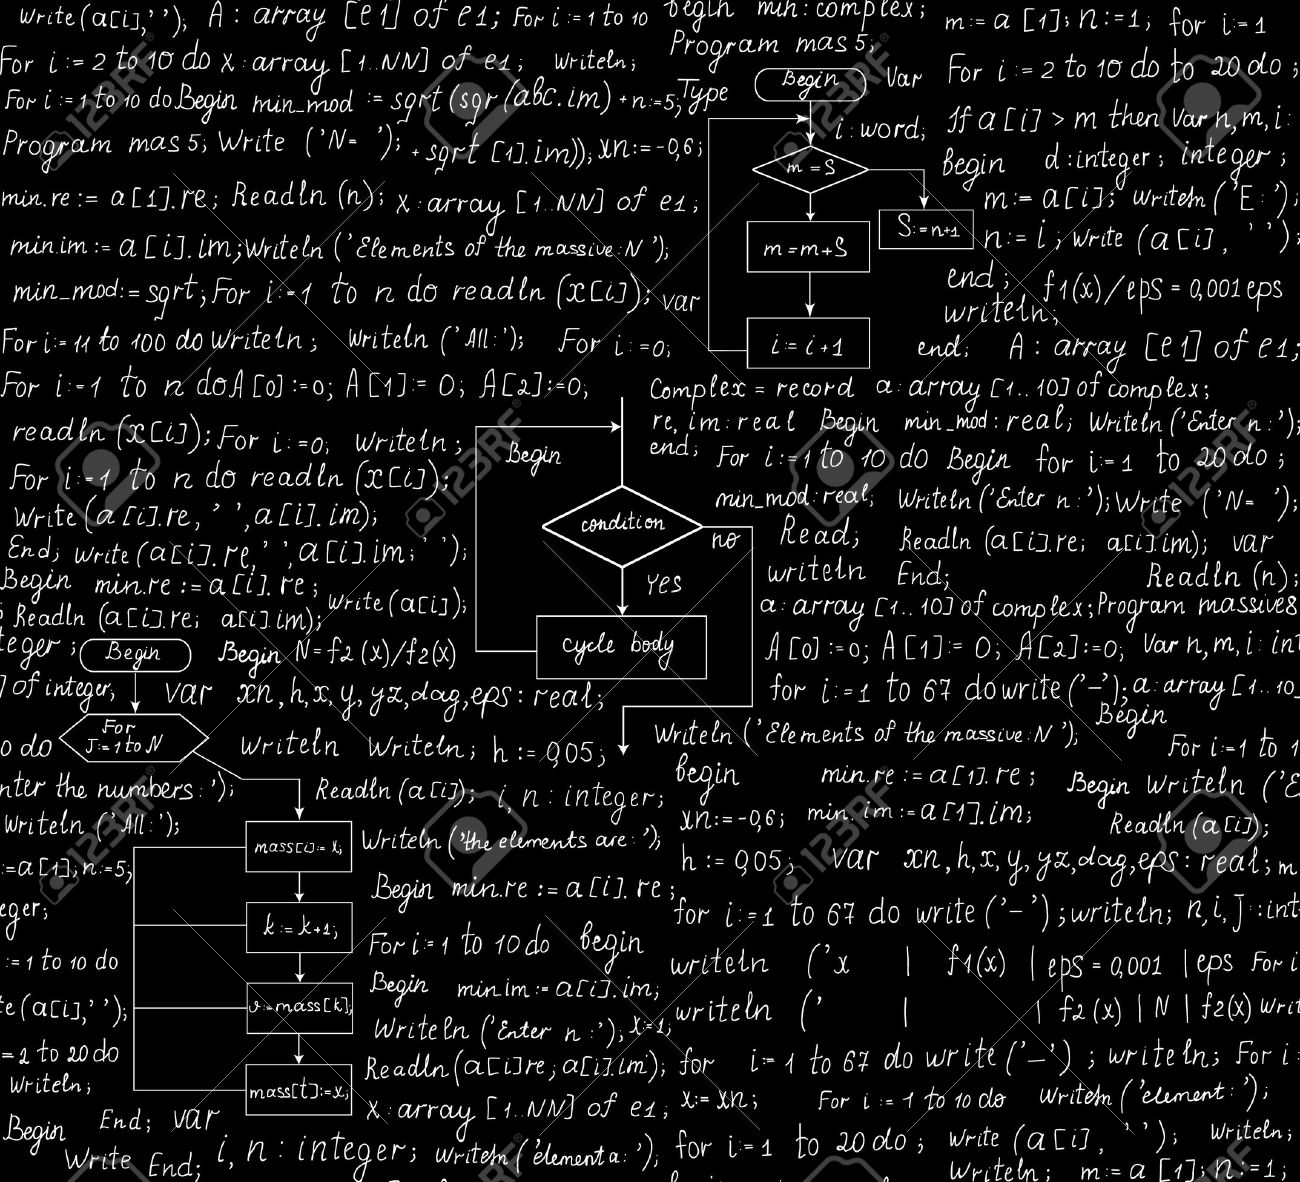 Write(a[i],' '); A : array [e1] of e1; For i := 1 to 10
begin min: complex;
m:= a [1]; n:=1; for i:=1
Program mas 5;
For i := 2 to 10 do x : array [1..NN] of e1; Writeln;
Begin Var
For i := 2 to 10 do to 20 do ;
For i := 1 to 10 do Begin min_mod := sqrt (sqr (abc.im) + n:=5; Type
i : word;
If a [i] > m then Var n, m, i :
Program mas 5; Write ('N= '); + sqrt [1].im)); xn:=-0,6;
m = S
begin d : integer ; integer ;
min.re := a[1].re; Readln (n); x : array [1..NN] of e1;
m:= a[i]; Writeln ('E : ');
S:=n+1
n:= i ; Write (a[i], ' ');
min.im := a[i].im; Writeln ('Elements of the massive: N ');
m=m+S
end ; f1(x)/eps = 0,001 eps
min_mod:= sqrt; For i :=1 to n do readln (x[i]); var
writeln;
For i:= 11 to 100 do Writeln ; Writeln ('All:'); For i :=0;
i:= i+1
end; A : array [e1] of e1;
For i :=1 to n do A [0] :=0; A[1]:= 0; A[2]:=0;
Complex = record a : array [1..10] of complex;
readln (x[i]); For i :=0; Writeln ;
re, im : real Begin min_mod : real; Writeln ('Enter n : ');
end;
Begin
For i :=1 to 10 do Begin for i :=1 to 20 do ;
For i :=1 to n do readln (x[i]);
min_mod: real; Writeln ('Enter n : '); Write ('N= ');
Write (a [i].re, ' ', a [i]. im);
condition
no
Read; Readln (a[i].re; a[i].im); var
End; Write (a[i].re, ' ', a[i].im; ' ');
Yes
writeln End; Readln (n);
Begin min.re := a[i]. re ; Write (a[i]);
a : array [1..10] of complex; Program massives
Readln (a[i].re; a[i].im);
cycle body
A [0] :=0; A [1] := 0; A[2]:=0; Var n, m, i : int
teger ; Begin Begin N=f2 (x)/f2(x)
] of integer; var xn, h, x, y, yz, dag, eps : real;
for i :=1 to 67 do write ('-'); a : array [1..10
Begin
For J:=1 to N
o do Writeln Writeln; h := 0,05;
Writeln ('Elements of the massive: N ');
For i :=1 to 1
nter the numbers : '); Readln (a[i]); i, n : integer;
begin min.re := a[1].re ; Begin Writeln ('E
Writeln ('All : ');
xn:=-0,6; min. im:=a[1].im; Readln (a[i]);
mass[i]:= x; Writeln ('the elements are : ');
:=a[1]; n:=5;
h := 0,05; var xn, h, x, y, yz, dag, eps : real; m
Begin min.re := a[i]. re ;
eger;
for i :=1 to 67 do write ('-') ; writeln; n, i, J : int
k:= k+1; For i :=1 to 10 do begin
:= 1 to 10 do
writeln ('x | f1(x) | eps = 0,001 | eps For i
Begin min.im := a[i].im;
te (a[i],' ');
v:=mass[k];
writeln (' | | f2 (x) | N | f2(x) Writ
Writeln ('Enter n : '); x:=1;
= 2 to 20 do
Readln (a[i]re; a[i].im); for i := 1 to 67 do write ('-') ; writeln; For i :
Writeln;
mass[t]:=x;
x : array [1..NN] of e1; x:= xn; For i := 1 to 10 do Writeln ('element : ');
Begin End; var
i, n : integer; Writeln ('element a : '); for i :=1 to 20 do ; Write (a[i], ' '); Writeln;
Write End;
Writeln; m:= a [1]; n:=1;
123RF